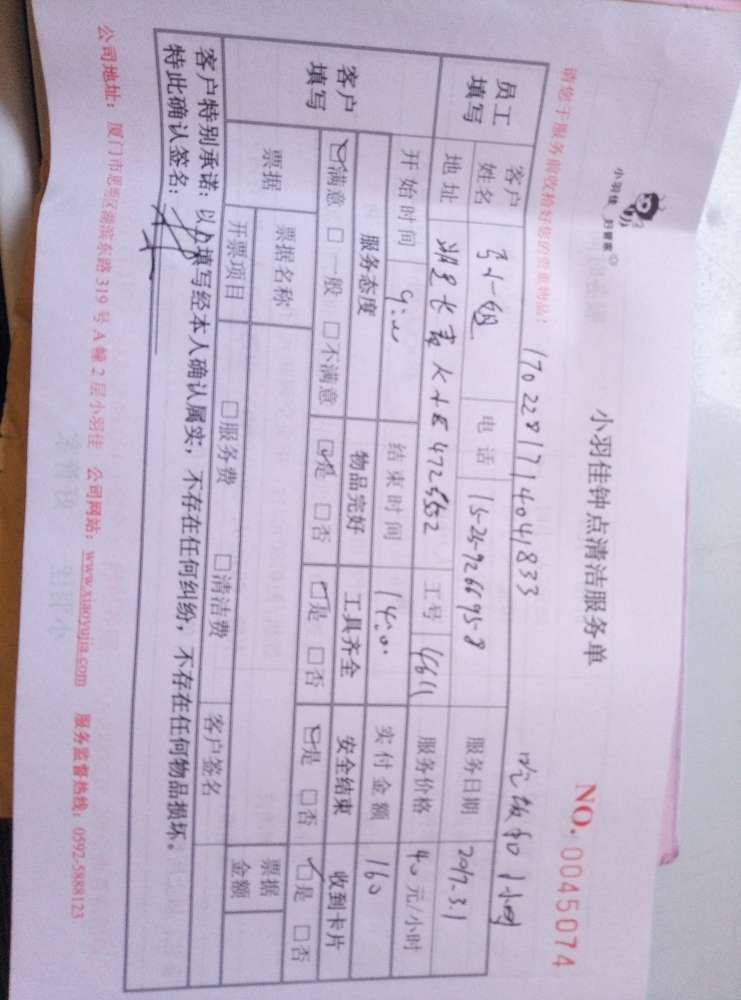 小羽佳 扫管家
小羽佳钟点清洁服务单
NO. 0045074
请您于服务前收拾好您的贵重物品:
1702281714041833 吃饭扣1小时
员工填写
客户姓名 小姐 电话 15259266958 服务日期 2017-3.1
地址 472 工号 4611 服务价格 40 元/小时
客户填写
开始时间 9:00 结束时间 14:00 实付金额 160
服务态度 物品完好 工具齐全 安全结束 收到卡片
☑满意 □一般 □不满意 ☑是 □否 ☑是 □否 ☑是 □否 ☑是 □否
票据 票据名称 票据金额
开票项目 □服务费 □清洁费 客户签名
客户特别承诺:以上填写经本人确认属实,不存在任何纠纷,不存在任何物品损坏。
特此确认签名:
公司地址:厦门市思明区湖滨东路319号A幢2层小羽佳 公司网站:www.xiaoyujia.com 服务监督热线:0592-5888123